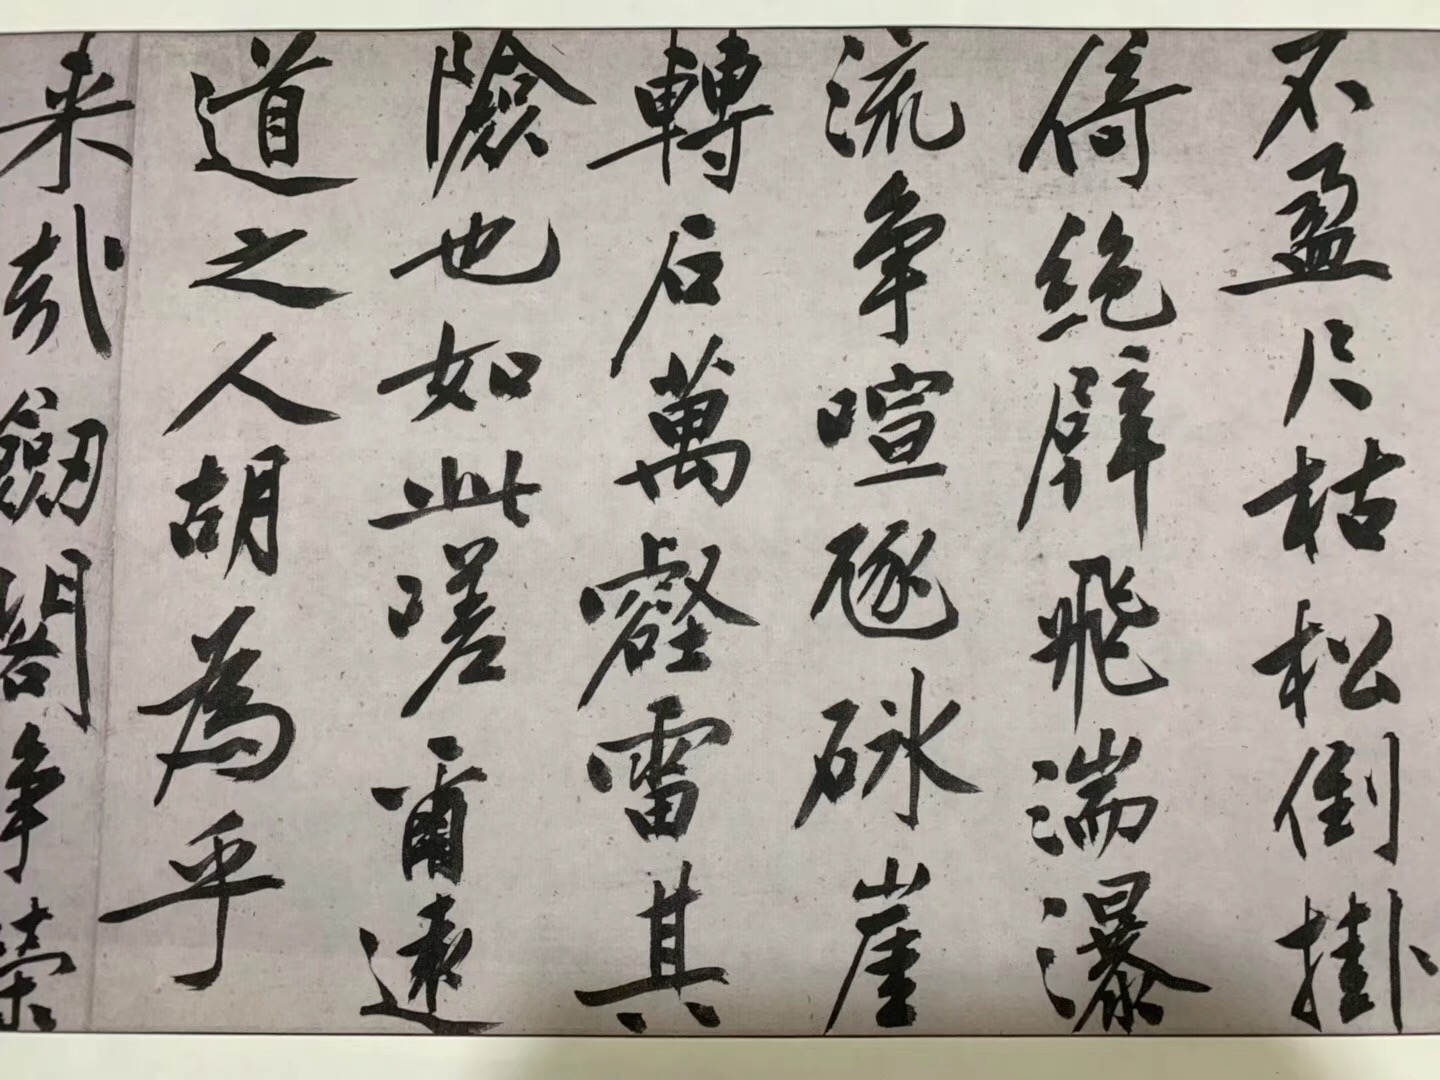 不盈尺枯松倒掛
倚絶壁飛湍瀑
流争喧豗砯崖
轉石萬壑雷其
險也如此嗟爾遠
道之人胡為乎
来哉劒閣争榮